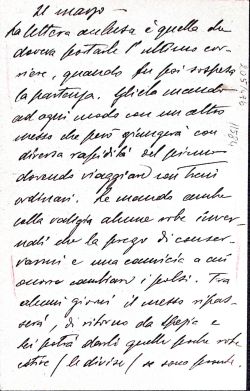 21 marzo
La lettera acclusa è quella che
doveva portarle l'ultimo cor-
riere, quando fu poi sospesa
la partenza. Gliela mando
ad ogni modo con un altro
messo che però giungerà con
diversa rapidità del primo
dovendo viaggiare con treni
ordinari. Le mando anche
nella valigia alcune robe inver-
nali che la prego di conser-
varmi e una camicia a cui
occorre cambiare i polsi. Tra
alcuni giorni il messo ripas-
serà, di ritorno da Spezia e
lei potrà darli quelle poche robe
estive (le divise) se sono pronte